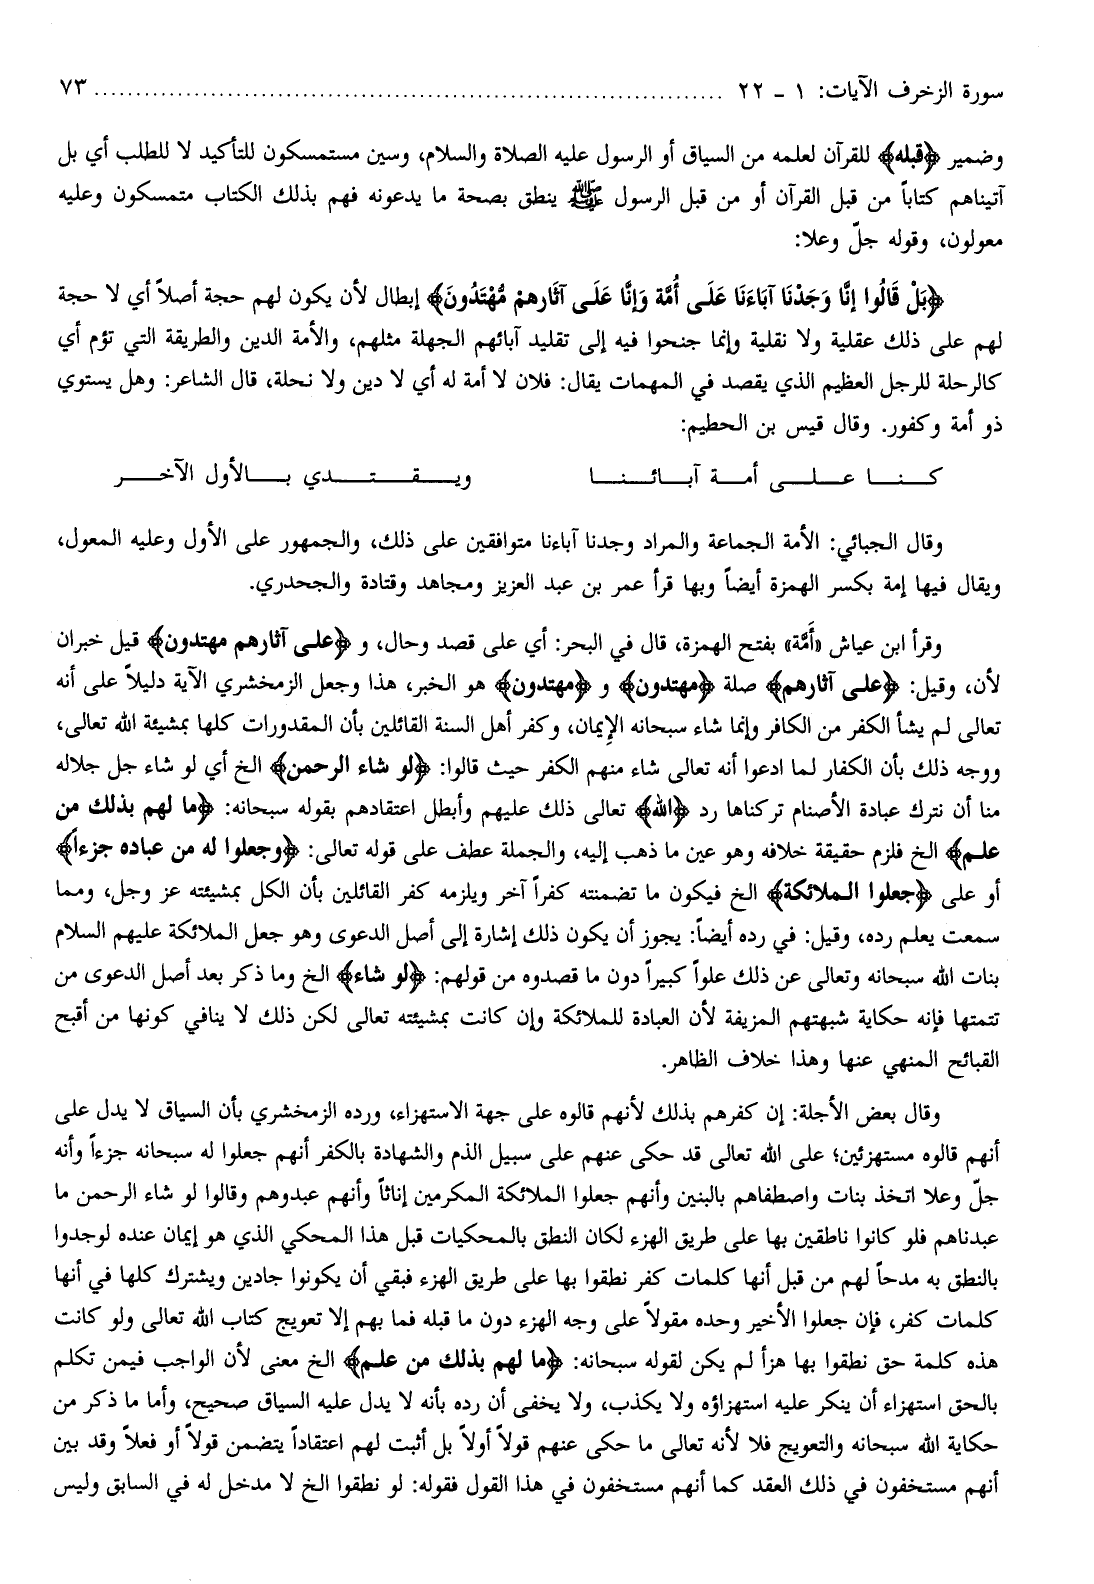 سورة الزخرف الآيات: ١ - ٢٢ ................................................................ ٧٣
وضمير ﴿قبله﴾ للقرآن لعلمه من السياق أو الرسول عليه الصلاة والسلام، وسين مستمسكون للتأكيد لا للطلب أي بل
آتيناهم كتاباً من قبل القرآن أو من قبل الرسول ﷺ ينطق بصحة ما يدعونه فهم بذلك الكتاب متمسكون وعليه
معولون، وقوله جلّ وعلا:
﴿بَلْ قَالُوا إنَّا وَجَدْنَا آبَاءَنَا عَلَى أُمَّة وَإنَّا عَلَى آثَارهمْ مُّهْتَدُونَ﴾ إبطال لأن يكون لهم حجة أصلاً أي لا حجة
لهم على ذلك عقلية ولا نقلية وإنما جنحوا فيه إلى تقليد آبائهم الجهلة مثلهم، والأمة الدين والطريقة التي تؤم أي
كالرحلة للرجل العظيم الذي يقصد في المهمات يقال: فلان لا أمة له أي لا دين ولا نحلة، قال الشاعر: وهل يستوي
ذو أمة وكفور. وقال قيس بن الحطيم:
كنا على أمة آبائنا ويقتدي بالأول الآخر
وقال الجبائي: الأمة الجماعة والمراد وجدنا آباءنا متوافقين على ذلك، والجمهور على الأول وعليه المعول،
ويقال فيها إمة بكسر الهمزة أيضاً وبها قرأ عمر بن عبد العزيز ومجاهد وقتادة والجحدري.
وقرأ ابن عياش «أَمَّة» بفتح الهمزة، قال في البحر: أي على قصد وحال، و ﴿على آثارهم مهتدون﴾ قيل خبران
لأن، وقيل: ﴿على آثارهم﴾ صلة ﴿مهتدون﴾ و ﴿مهتدون﴾ هو الخبر، هذا وجعل الزمخشري الآية دليلاً على أنه
تعالى لم يشأ الكفر من الكافر وإنما شاء سبحانه الإيمان، وكفر أهل السنة القائلين بأن المقدورات كلها بمشيئة الله تعالى،
ووجه ذلك بأن الكفار لما ادعوا أنه تعالى شاء منهم الكفر حيث قالوا: ﴿لو شاء الرحمن﴾ الخ أي لو شاء جل جلاله
منا أن نترك عبادة الأصنام تركناها رد ﴿الله﴾ تعالى ذلك عليهم وأبطل اعتقادهم بقوله سبحانه: ﴿ما لهم بذلك من
علم﴾ الخ فلزم حقيقة خلافه وهو عين ما ذهب إليه، والجملة عطف على قوله تعالى: ﴿وجعلوا له من عباده جزءاً﴾
أو على ﴿جعلوا الملائكة﴾ الخ فيكون ما تضمنته كفراً آخر ويلزمه كفر القائلين بأن الكل بمشيئته عز وجل، ومما
سمعت يعلم رده، وقيل: في رده أيضاً: يجوز أن يكون ذلك إشارة إلى أصل الدعوى وهو جعل الملائكة عليهم السلام
بنات الله سبحانه وتعالى عن ذلك علواً كبيراً دون ما قصدوه من قولهم: ﴿لو شاء﴾ الخ وما ذكر بعد أصل الدعوى من
تتمتها فإنه حكاية شبهتهم المزيفة لأن العبادة للملائكة وإن كانت بمشيئته تعالى لكن ذلك لا ينافي كونها من أقبح
القبائح المنهي عنها وهذا خلاف الظاهر.
وقال بعض الأجلة: إن كفرهم بذلك لأنهم قالوه على جهة الاستهزاء، ورده الزمخشري بأن السياق لا يدل على
أنهم قالوه مستهزئين؛ على الله تعالى قد حكى عنهم على سبيل الذم والشهادة بالكفر أنهم جعلوا له سبحانه جزءاً وأنه
جلّ وعلا اتخذ بنات واصطفاهم بالبنين وأنهم جعلوا الملائكة المكرمين إناثاً وأنهم عبدوهم وقالوا لو شاء الرحمن ما
عبدناهم فلو كانوا ناطقين بها على طريق الهزء لكان النطق بالمحكيات قبل هذا المحكي الذي هو إيمان عنده لوجدوا
بالنطق به مدحاً لهم من قبل أنها كلمات كفر نطقوا بها على طريق الهزء فبقي أن يكونوا جادين ويشترك كلها في أنها
كلمات كفر، فإن جعلوا الأخير وحده مقولاً على وجه الهزء دون ما قبله فما بهم إلا تعويج كتاب الله تعالى ولو كانت
هذه كلمة حق نطقوا بها هزأ لم يكن لقوله سبحانه: ﴿ما لهم بذلك من علم﴾ الخ معنى لأن الواجب فيمن تكلم
بالحق استهزاء أن ينكر عليه استهزاؤه ولا يكذب، ولا يخفى أن رده بأنه لا يدل عليه السياق صحيح، وأما ما ذكر من
حكاية الله سبحانه والتعويج فلا لأنه تعالى ما حكى عنهم قولاً أولاً بل أثبت لهم اعتقاداً يتضمن قولاً أو فعلاً وقد بين
أنهم مستخفون في ذلك العقد كما أنهم مستخفون في هذا القول فقوله: لو نطقوا الخ لا مدخل له في السابق وليس